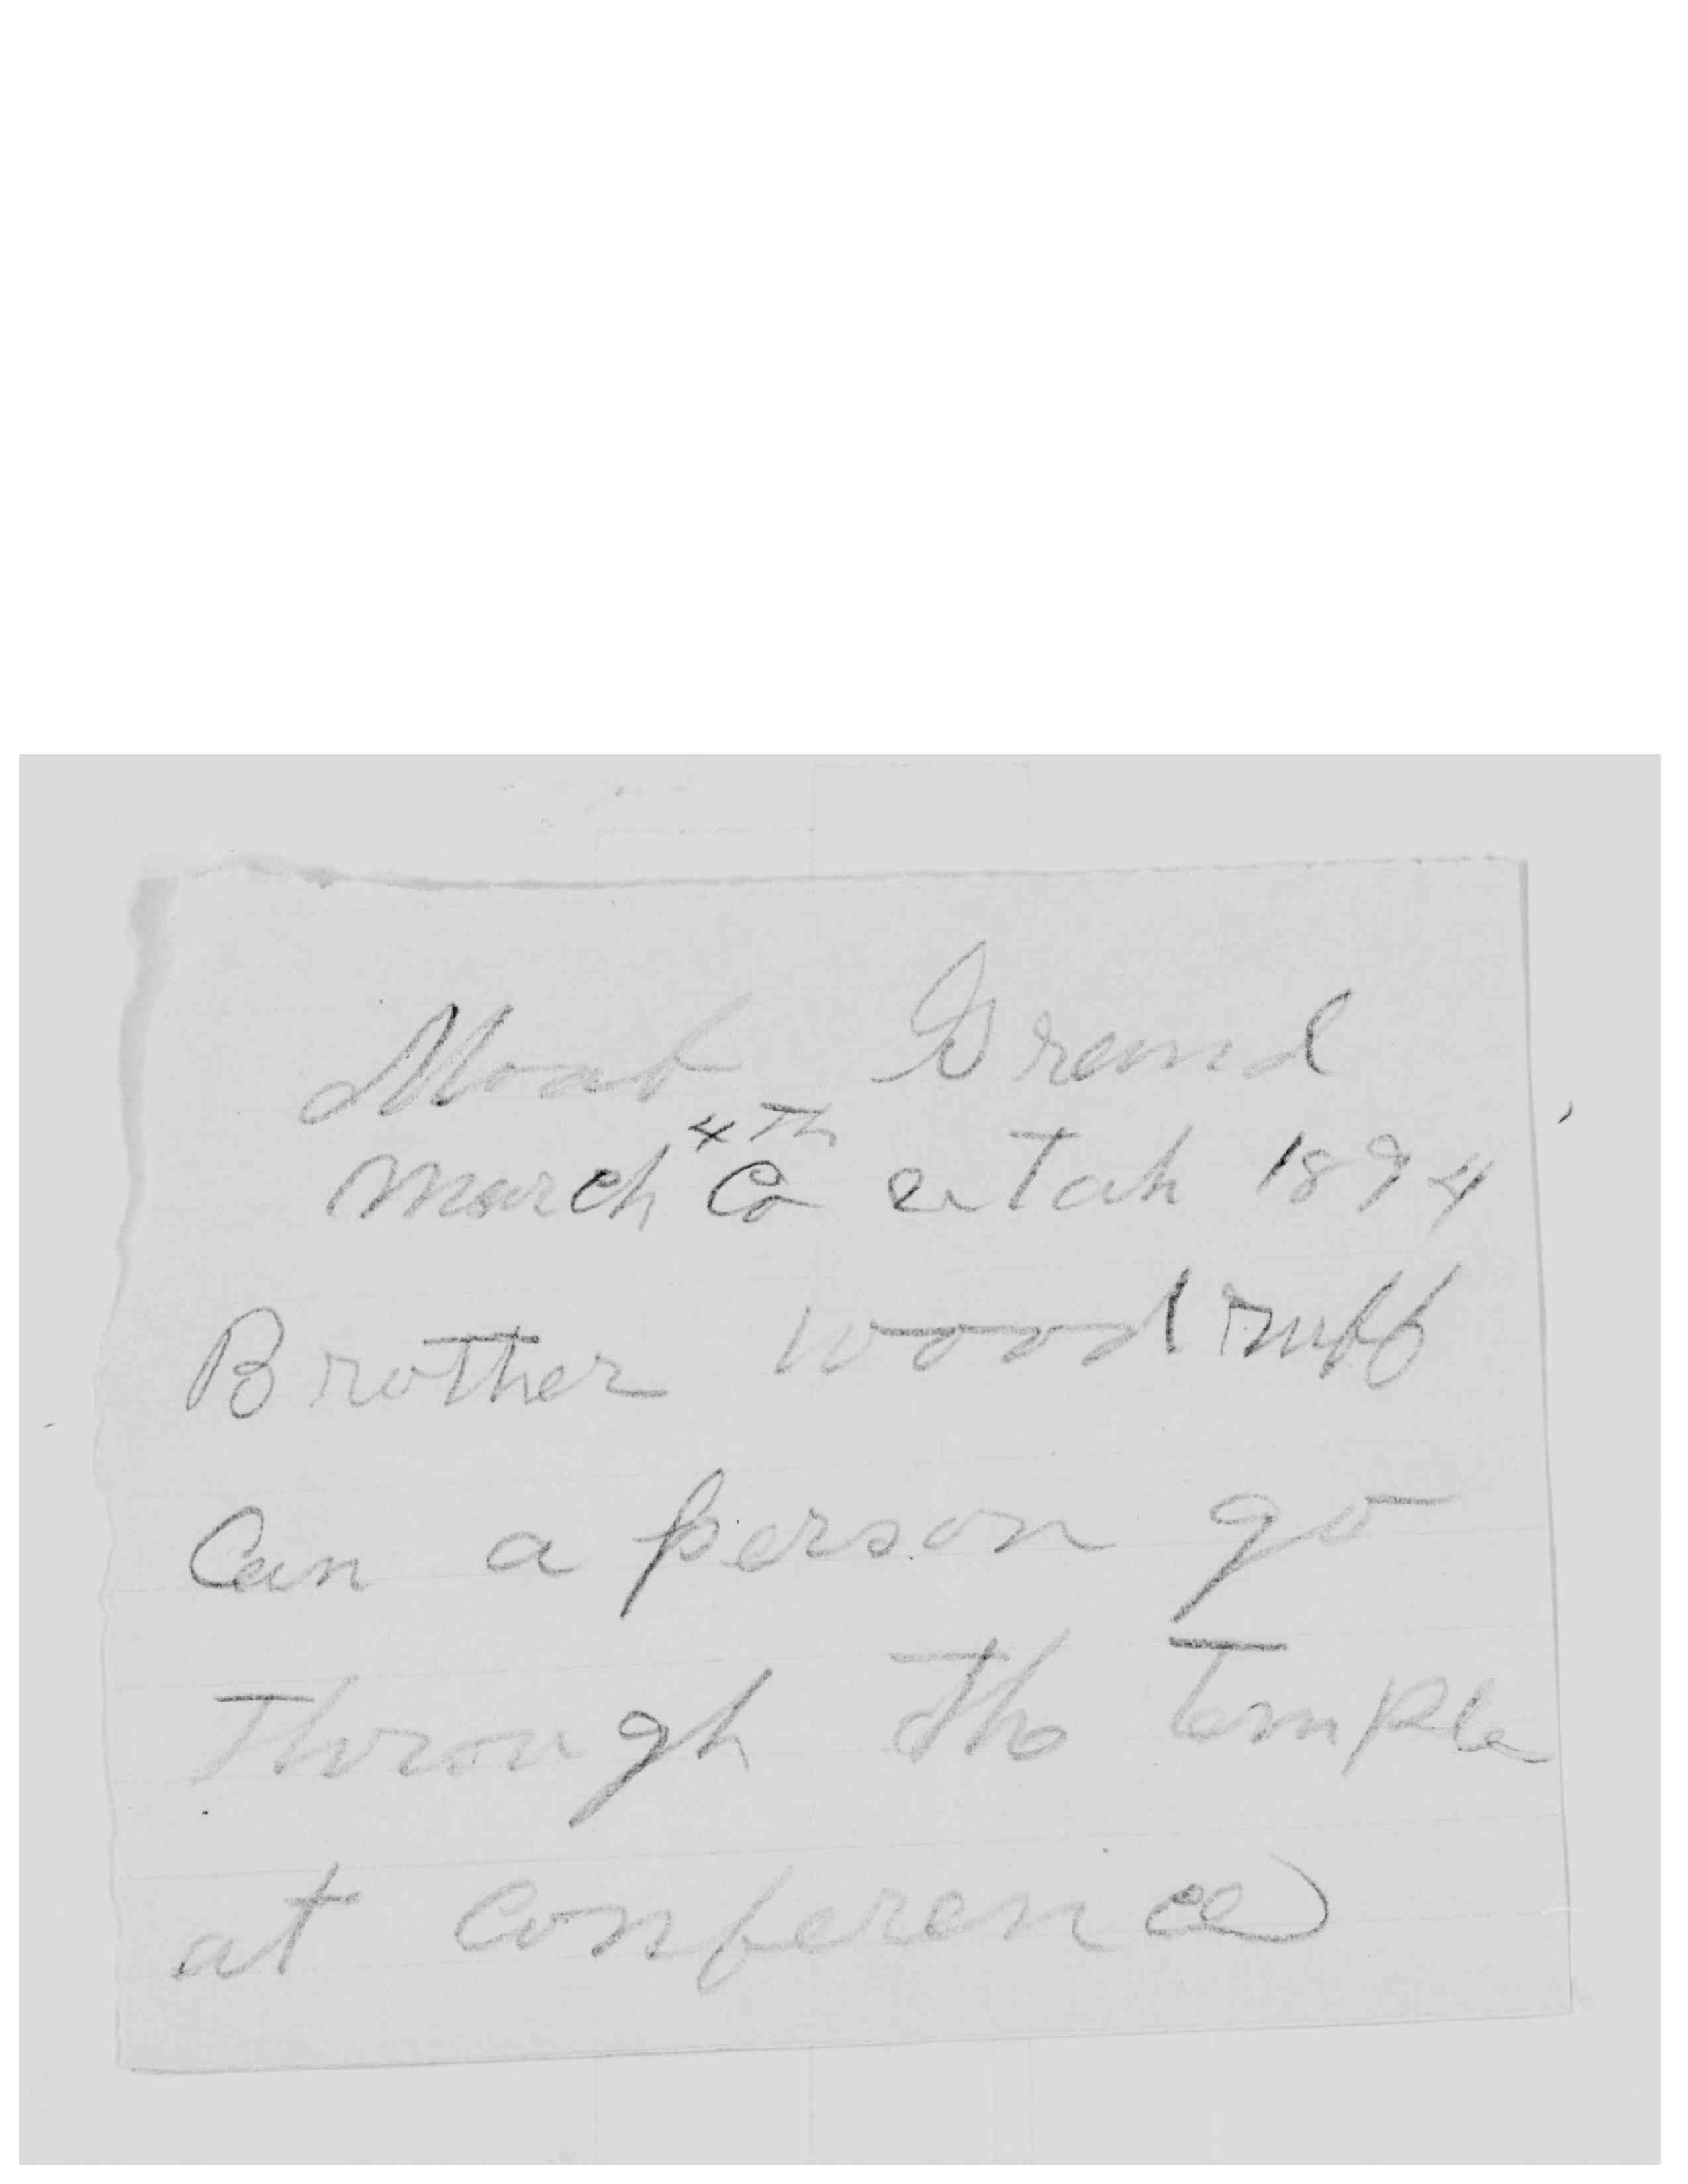 Moab Grand
March 4th Co utah 1894
Brother woodruff
Can a person go
Through the Temple
at conference